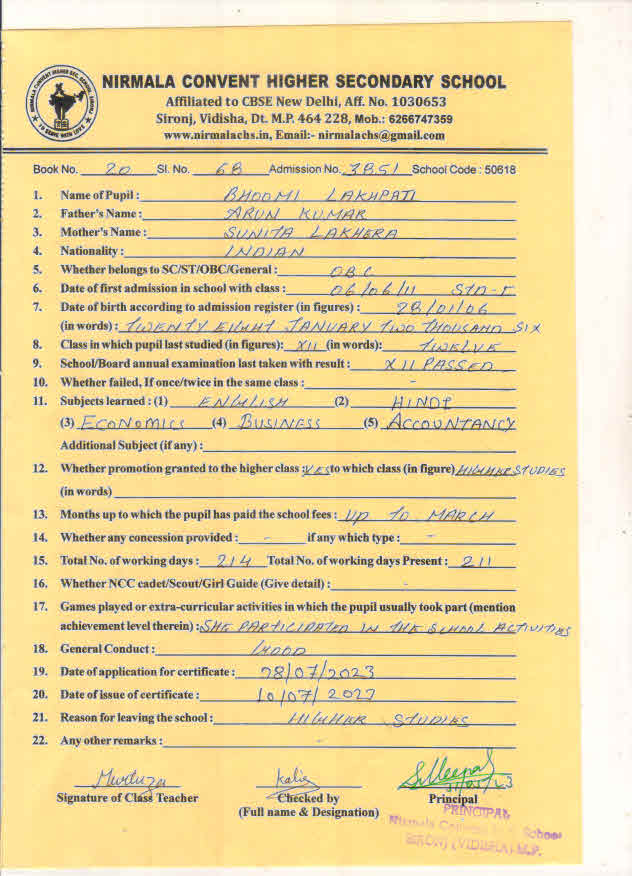 NIRMALA CONVENT HIGHER SECONDARY SCHOOL
Affiliated to CBSE New Delhi, Aff. No. 1030653
Sironj, Vidisha, Dt. M.P. 464 228, Mob.: 6266747359
www.nirmalachs.in, Email:- nirmalachs@gmail.com
Book No. 20 Sl. No. 68 Admission No. 3851 School Code : 50618
1. Name of Pupil : BHOOMI LAKHPATI
2. Father's Name : ARUN KUMAR
3. Mother's Name : SUNITA LAKHERA
4. Nationality : INDIAN
5. Whether belongs to SC/ST/OBC/General : OBC
6. Date of first admission in school with class : 06/06/11 STD-I
7. Date of birth according to admission register (in figures) : 28/01/06
(in words) : TWENTY EIGHT JANUARY TWO THOUSAND SIX
8. Class in which pupil last studied (in figures): XII (in words): TWELVE
9. School/Board annual examination last taken with result : XII PASSED
10. Whether failed, If once/twice in the same class : -
11. Subjects learned : (1) ENGLISH (2) HINDI
(3) ECONOMICS (4) BUSINESS (5) ACCOUNTANCY
Additional Subject (if any) :
12. Whether promotion granted to the higher class : YES to which class (in figure) HIGHER STUDIES
(in words)
13. Months up to which the pupil has paid the school fees : UP TO MARCH
14. Whether any concession provided : - if any which type : -
15. Total No. of working days : 214 Total No. of working days Present : 211
16. Whether NCC cadet/Scout/Girl Guide (Give detail) : -
17. Games played or extra-curricular activities in which the pupil usually took part (mention
achievement level therein) : SHE PARTICIPATED IN THE SCHOOL ACTIVITIES
18. General Conduct : GOOD
19. Date of application for certificate : 08/07/2023
20. Date of issue of certificate : 10/07/2023
21. Reason for leaving the school : HIGHER STUDIES
22. Any other remarks : -
Signature of Class Teacher Checked by Principal
(Full name & Designation)
PRINCIPAL
Nirmala Convent H.S. School
SIRONJ (VIDISHA) M.P.